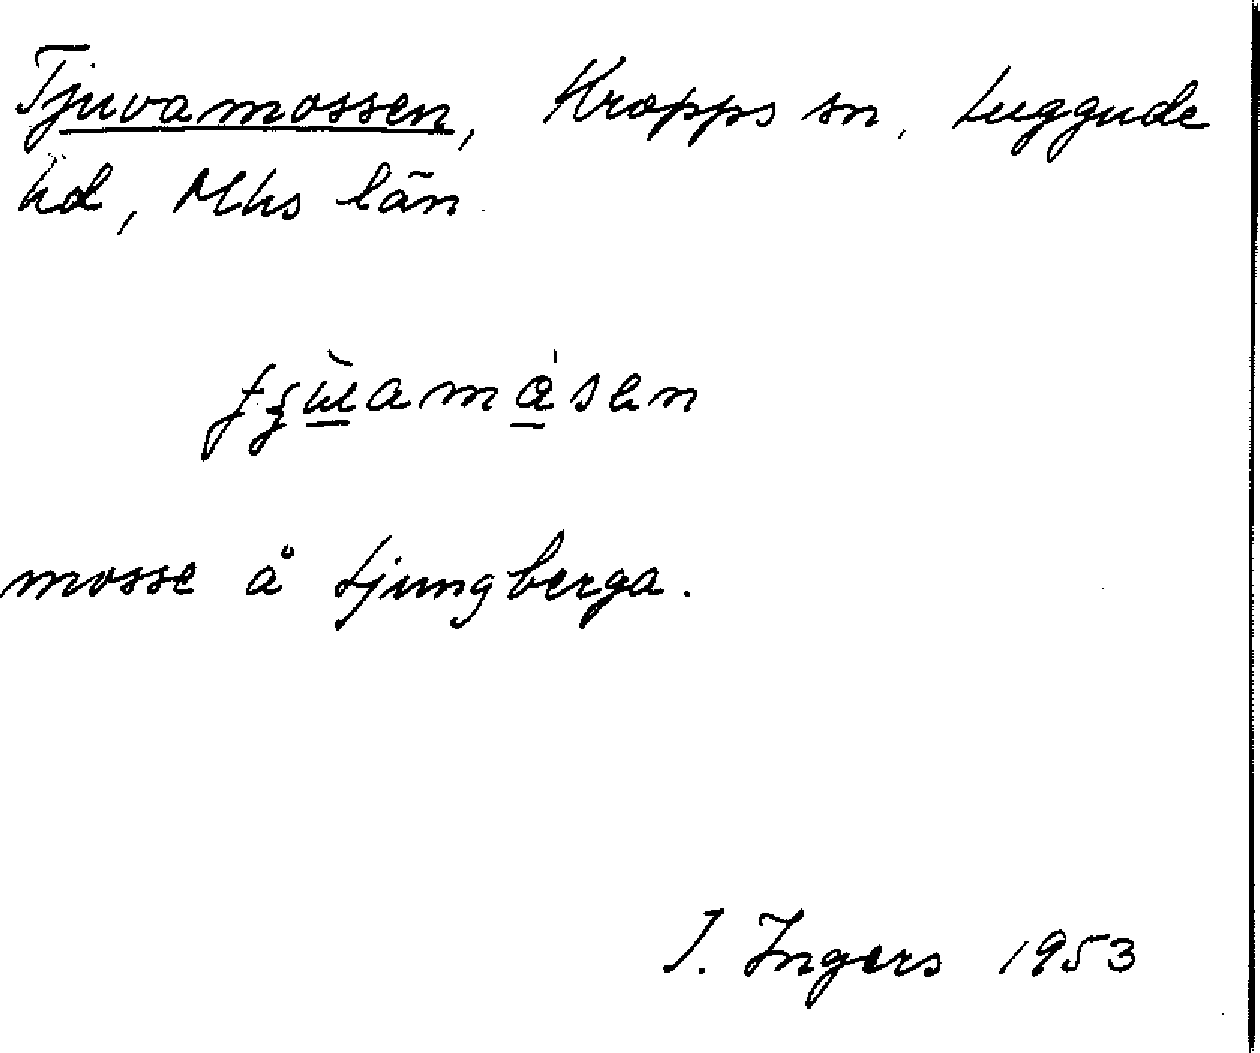 Tjuvamossen, Kropps sn, Luggude
hd, Mhs län
mosse å Ljungberga.
I. Ingers 1953